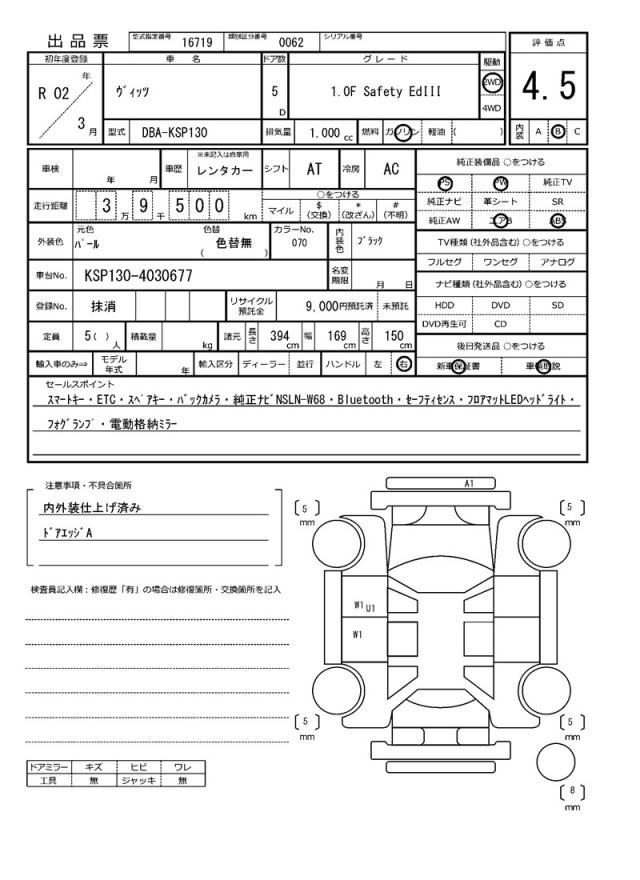 出品票 型式指定番号 16719 類別区分番号 0062 シリアル番号
評価点
4.5
内装 A B C
初年度登録 車名 ドア数 グレード 駆動
R 02 年 3 月 ヴィッツ 5 D 1.0F Safety EdIII 2WD 4WD
型式 DBA-KSP130 排気量 1,000 cc 燃料 ガソリン 軽油 ( )
車検 年 月 車歴 ※未記入は自家用 レンタカー シフト AT 冷房 AC
走行距離 3 万 9 千 5 0 0 km ○をつける
マイル $ (交換) * (改ざん) # (不明)
外装色 元色 パール 色替 色替無 ( ) カラーNo. 070 内装色 ブラック
車台No. KSP130-4030677 名変期限 月 日
登録No. 抹消 リサイクル預託金 9,000円預託済 未預託
定員 5( ) 人 積載量 kg 諸元 長さ 394 cm 幅 169 cm 高さ 150 cm
輸入車のみ⇒ モデル年式 年 輸入区分 ディーラー 並行 ハンドル 左 右
純正装備品 ○をつける
PS PW 純正TV
純正ナビ 革シート SR
純正AW エアB ABS
TV種類 (社外品含む) ○をつける
フルセグ ワンセグ アナログ
ナビ種類 (社外品含む) ○をつける
HDD DVD SD
DVD再生可 CD
後日発送品 ○をつける
新車保証書 車輌取説
セールスポイント
スマートキー・ETC・スペアキー・バックカメラ・純正ナビNSLN-W68・Bluetooth・セーフティセンス・フロアマットLEDヘッドライト・
フォグランプ・電動格納ミラー
注意事項・不具合箇所
内外装仕上げ済み
ドアエッジA
検査員記入欄：修復歴「有」の場合は修復箇所・交換箇所を記入
ドアミラー キズ ヒビ ワレ
工具 無 ジャッキ 無
A1
5 mm
5 mm
W1 U1
W1
5 mm
5 mm
8 mm